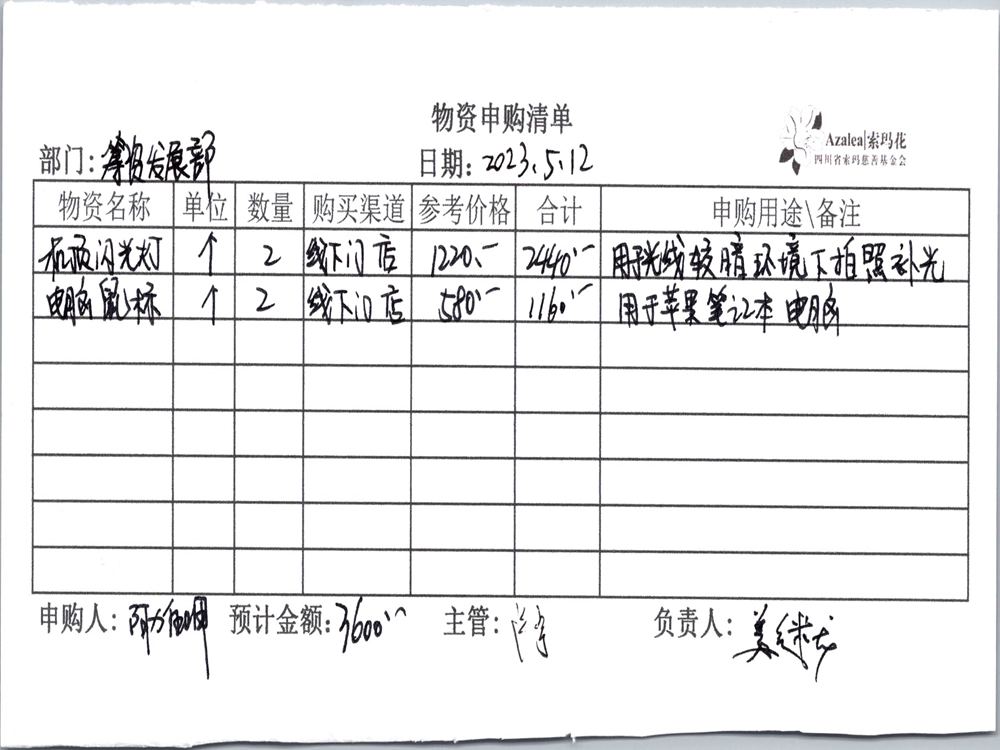 物资申购清单
Azalea|索玛花
四川省索玛慈善基金会
部门：筹资发展部 日期：2023.5.12
物资名称 单位 数量 购买渠道 参考价格 合计 申购用途\备注
机顶闪光灯 个 2 线下门店 1220.- 2440.- 用于光线较暗环境下拍照补光
电脑鼠标 个 2 线下门店 580.- 1160.- 用于苹果笔记本电脑
申购人： 预计金额：3600.- 主管： 负责人：